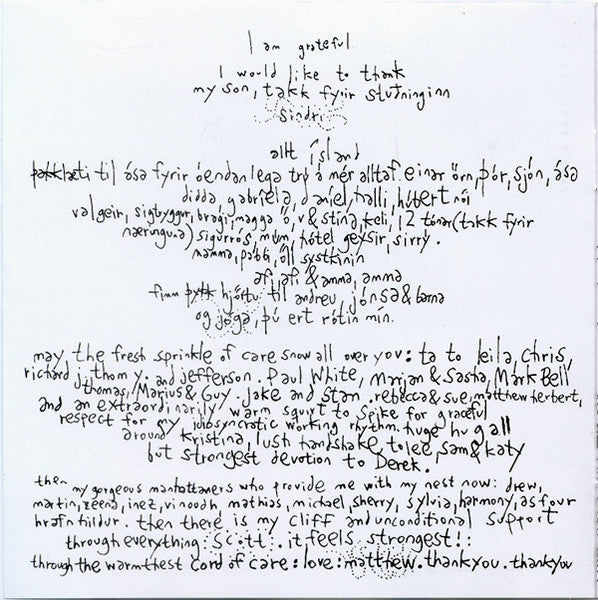 I am grateful
I would like to thank
my son, takk fyrir stuðninginn
Sindri
allt ísland
þakklæti til ása fyrir óendanlega trú á mér alltaf. einar örn, þór, sjón, ása
didda, gabríela, daníel, halli, húbert nói
valgeir, sigtryggur, bragi, magga ö, v & stína, keli, 12 tónar (takk fyrir
næringuna) sigurrós, múm, hótel geysir, sirrý.
mamma, pabbi, öll systkinin
afi, afi & amma, amma
fimm þykk hjörtu til andreu, jónsa & barna
og jóga, þú ert rótin mín.
may, the fresh sprinkle of care snow all over you: ta to leila, chris,
richard j. thom y. and jefferson. Paul White, Marjan & Sasha, Mark Bell
thomas, Marius & Guy. Jake and Stan. rebecca & sue, matthew herbert,
and an extraordinarily warm squirt to Spike for graceful
respect for my idiosyncratic working rhythm. huge hug all
around kristina, lush handshake to lee, sam & katy
but strongest devotion to Derek.
then my gorgeous manhattaners who provide me with my nest now: drew,
martin, zeena, inez, vinoodh, mathias, michael, sherry, sylvia, harmony, as four
hrafnhildur. then there is my cliff and unconditional support
through everything: scott. it feels strongest!:
through the warmthest cord of care: love: matthew. thankyou. thankyou